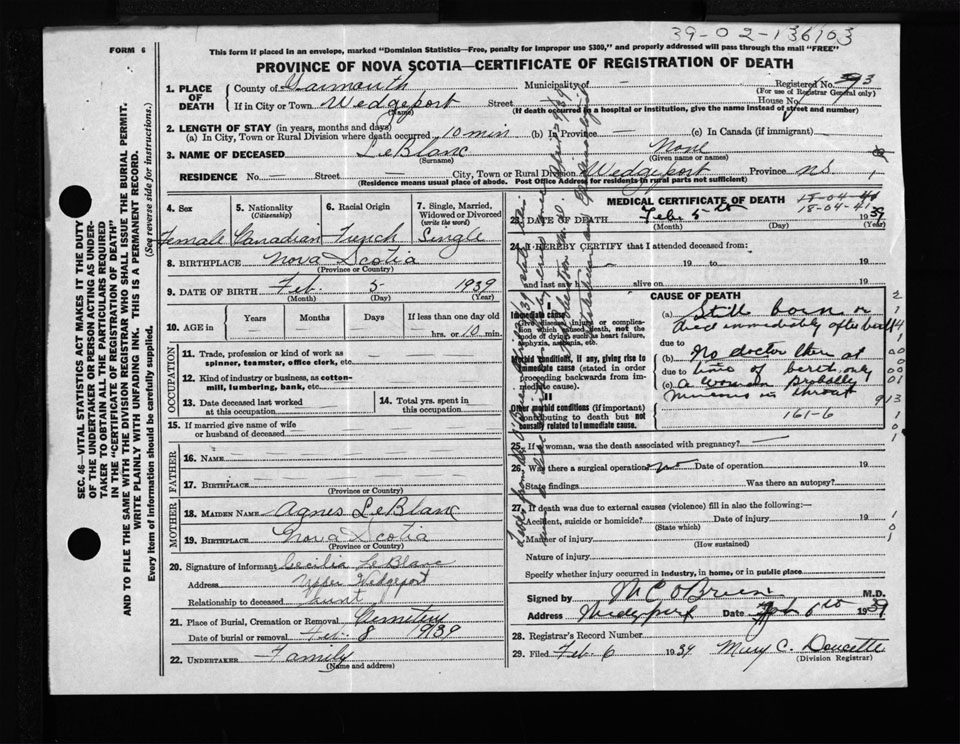 39-02-136103
FORM 6
This form if placed in an envelope, marked "Dominion Statistics—Free, penalty for improper use $300," and properly addressed will pass through the mail "FREE"
PROVINCE OF NOVA SCOTIA—CERTIFICATE OF REGISTRATION OF DEATH
SEC. 46—VITAL STATISTICS ACT MAKES IT THE DUTY
OF THE UNDERTAKER OR PERSON ACTING AS UNDER-
TAKER TO OBTAIN ALL THE PARTICULARS REQUIRED
IN THE "CERTIFICATE OF REGISTRATION OF DEATH"
AND TO FILE THE SAME WITH THE DIVISION REGISTRAR WHO SHALL ISSUE THE BURIAL PERMIT.
WRITE PLAINLY WITH UNFADING INK. THIS IS A PERMANENT RECORD.
Every item of information should be carefully supplied. (See reverse side for instructions.)
1. PLACE OF DEATH County of Yarmouth Municipality of — Registered No. 3
(For use of Registrar General only)
If in City or Town Wedgeport Street House No.
(Name) (If death occurred in a hospital or institution, give the name instead of street and number)
2. LENGTH OF STAY (in years, months and days)
(a) In City, Town or Rural Division where death occurred 10 min (b) In Province — (c) In Canada (if immigrant)
3. NAME OF DECEASED LeBlanc None
(Surname) (Given name or names)
RESIDENCE No. — Street — City, Town or Rural Division Wedgeport Province N.S.
(Residence means usual place of abode. Post Office Address for residents in rural parts not sufficient)
4. Sex
Female
5. Nationality
(Citizenship)
Canadian
6. Racial Origin
French
7. Single, Married,
Widowed or Divorced
(write the word)
Single
8. BIRTHPLACE Nova Scotia
(Province or Country)
9. DATE OF BIRTH Feb. 5 1939
(Month) (Day) (Year)
10. AGE in Years Months Days If less than one day
— — — hrs. or 10 min.
OCCUPATION
11. Trade, profession or kind of work as
spinner, teamster, office clerk, etc.
12. Kind of industry or business, as cotton-
mill, lumbering, bank, etc.
13. Date deceased last worked
at this occupation
14. Total yrs. spent in
this occupation
15. If married give name of wife
or husband of deceased
FATHER
16. NAME
17. BIRTHPLACE
(Province or Country)
MOTHER
18. MAIDEN NAME Agnes LeBlanc
19. BIRTHPLACE Nova Scotia
(Province or Country)
20. Signature of informant Cecilia LeBlanc
Address Upper Wedgeport
Relationship to deceased Aunt
21. Place of Burial, Cremation or Removal Cemetery
Date of burial or removal Feb. 8 1939
22. UNDERTAKER Family
(Name and address)
MEDICAL CERTIFICATE OF DEATH
18-04-41
23. DATE OF DEATH Feb. 5th 1939
(Month) (Day) (Year)
24. I HEREBY CERTIFY that I attended deceased from:
19 to 19
and last saw h alive on 19
CAUSE OF DEATH
I
Immediate cause
(Give disease, injury or complica-
tion which caused death, not the
mode of dying such as heart failure,
asphyxia, asthenia, etc.
Morbid conditions, if any, giving rise to
immediate cause (stated in order
proceeding backwards from im-
mediate cause).
II
Other morbid conditions (if important)
contributing to death but not
causally related to immediate cause.
(a) Still born or
died immediately after birth
due to
(b) No doctor there at
due to time of birth only
(c) a woman probably
mucus in throat
161-6
25. If a woman, was the death associated with pregnancy?
26. Was there a surgical operation no Date of operation 19
State findings Was there an autopsy?
27. If death was due to external causes (violence) fill in also the following:—
Accident, suicide or homicide? Date of injury 19
(State which)
Manner of injury
(How sustained)
Nature of injury
Specify whether injury occurred in industry, in home, or in public place
Signed by M C O'Brien M.D.
Address Wedgeport Date Feb 6th 1939
28. Registrar's Record Number
29. Filed Feb. 6 1939 Mary C. Doucette
(Division Registrar)